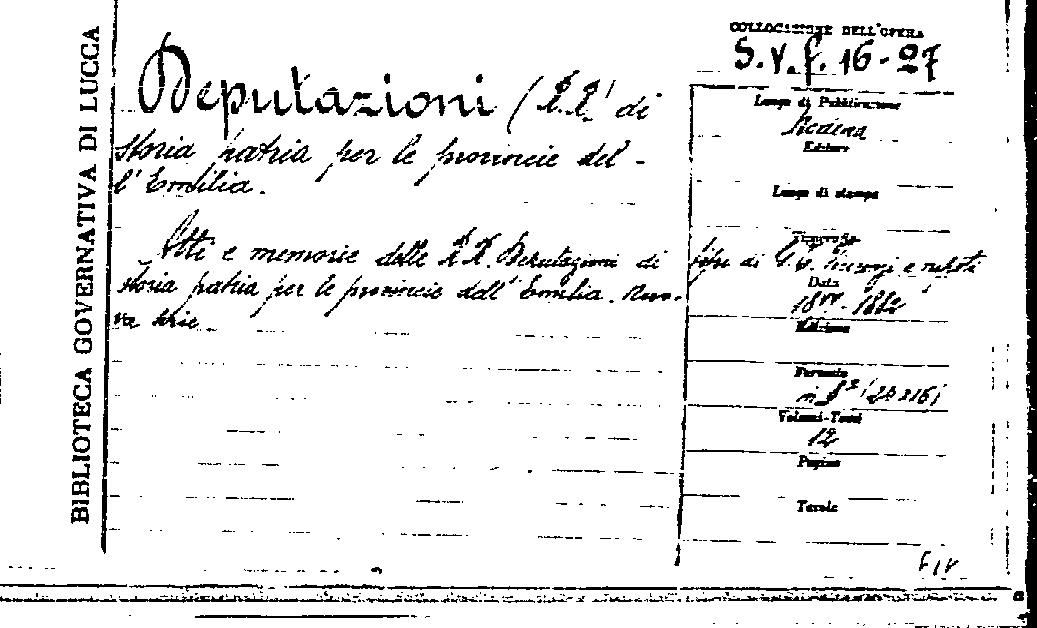 BIBLIOTECA GOVERNATIVA DI LUCCA
Deputazioni (RR) di
storia patria per le provincie del-
l'Emilia.
Atti e memorie delle RR. Deputazioni di
storia patria per le provincie dell'Emilia. Nuo-
va serie.
COLLOCAZIONE DELL'OPERA
S.V.f. 16-27
Luogo di Pubblicazione
Modena
Editore
Luogo di stampa
Tipografia
tip. di G. T. Vincenzi e nipoti
Data
1877-1882
Edizione
Formato
in 8º
Volumi-Tomi
12
Pagine
Tavole